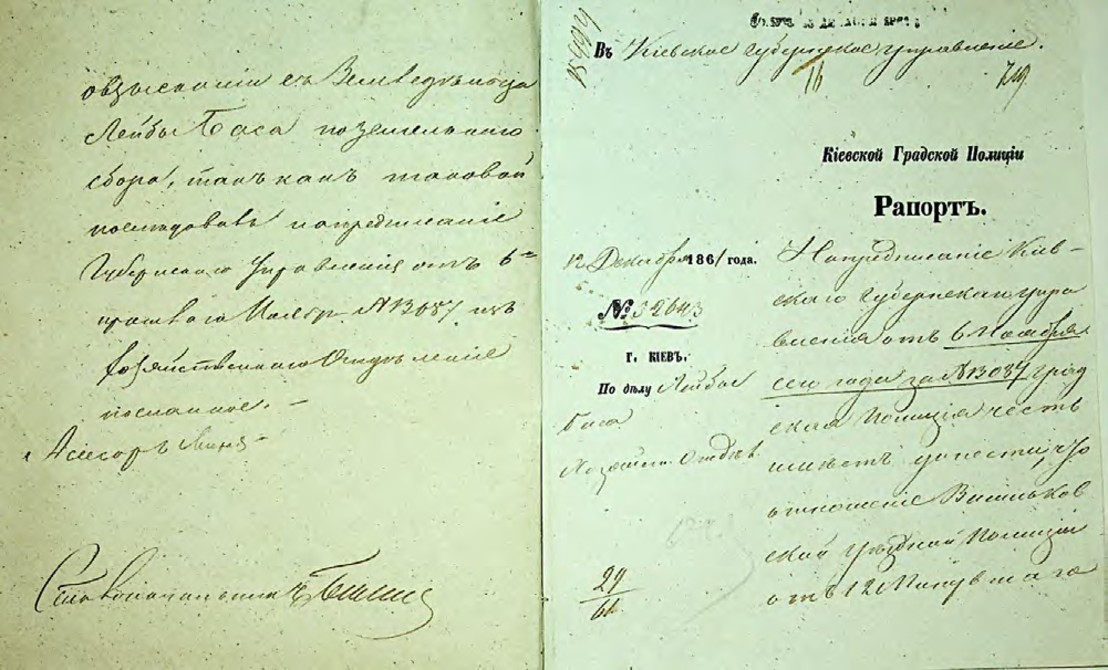 овзысканіи съ Земледѣльца
Лейбы Баса поземельнаго
сбора, такъ какъ таковой
послѣдовалъ по предписанію
Губернскаго Управленія отъ 6го
прошлаго Ноябр. №13087 изъ
Хозяйственнаго Отдѣленія
посланное. –
Асесоръ
Столоначальникъ
Въ Кіевское Губернское Управленіе.
16
719
Кіевской Градской Полиціи
Рапортъ.
12 Декабря 1861 года.
№32643
г. КІЕВЪ.
По дѣлу Лейбы
Баса
Хозяйст. Отдѣл
29
61
На предписаніе Кіев-
скаго Губернскаго Упра
вленія отъ 6 Ноября
сего года за №13087 Град
ская Полиція честь
имѣетъ донести, что
отношеніе Васильков
ской Уѣздной Полиціи
отъ 12 Минувшаго